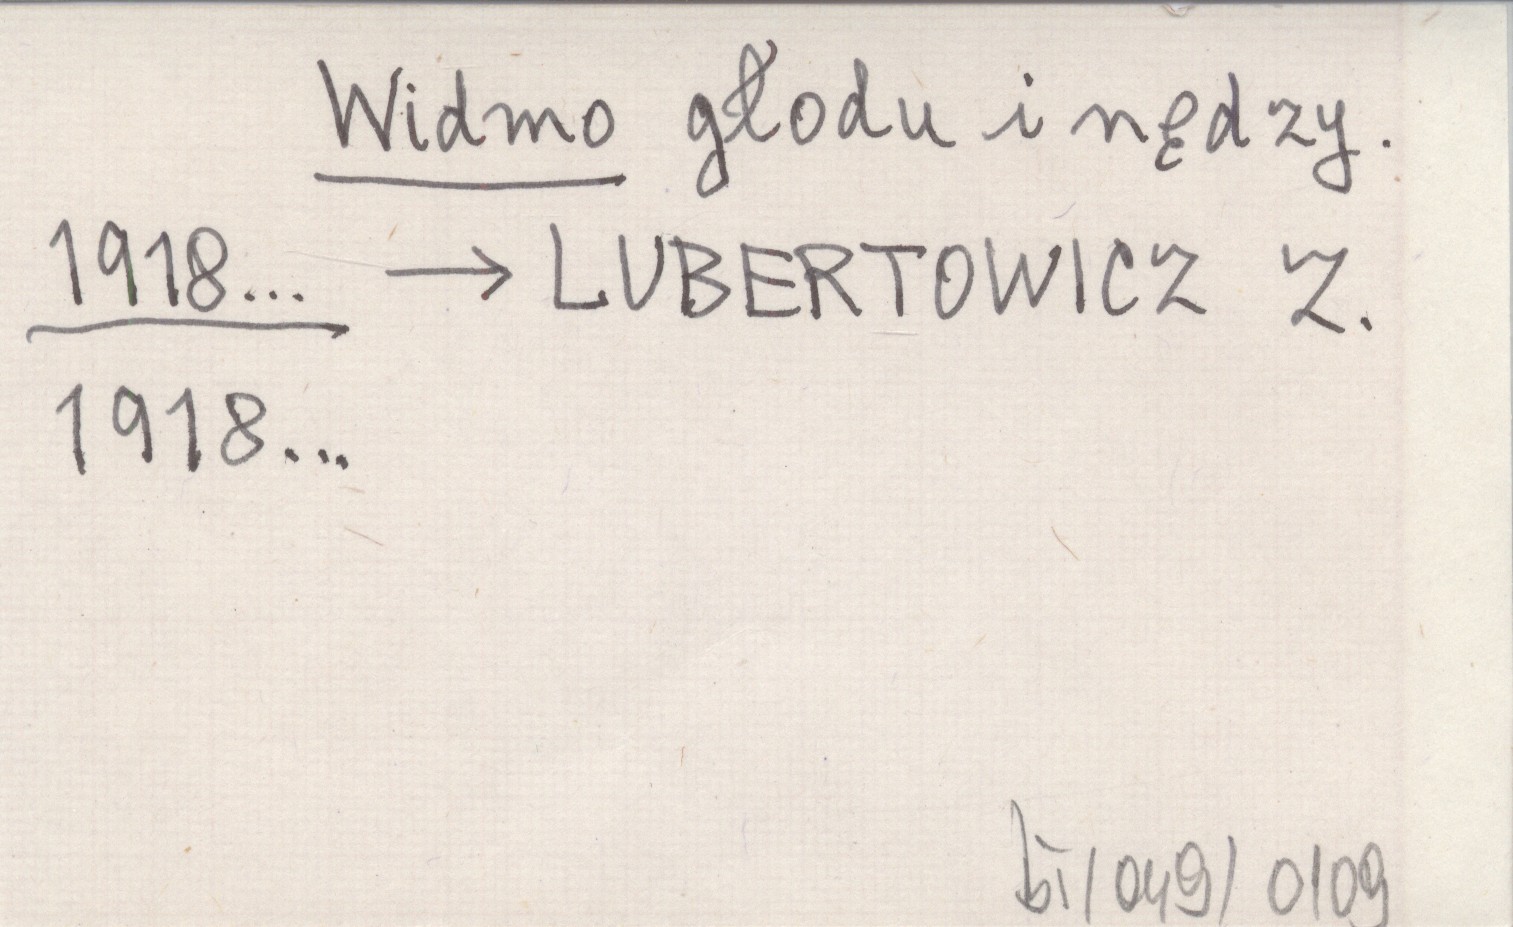 Widmo głodu i nędzy.
1918... → LUBERTOWICZ Z.
1918...
bī/049/0109